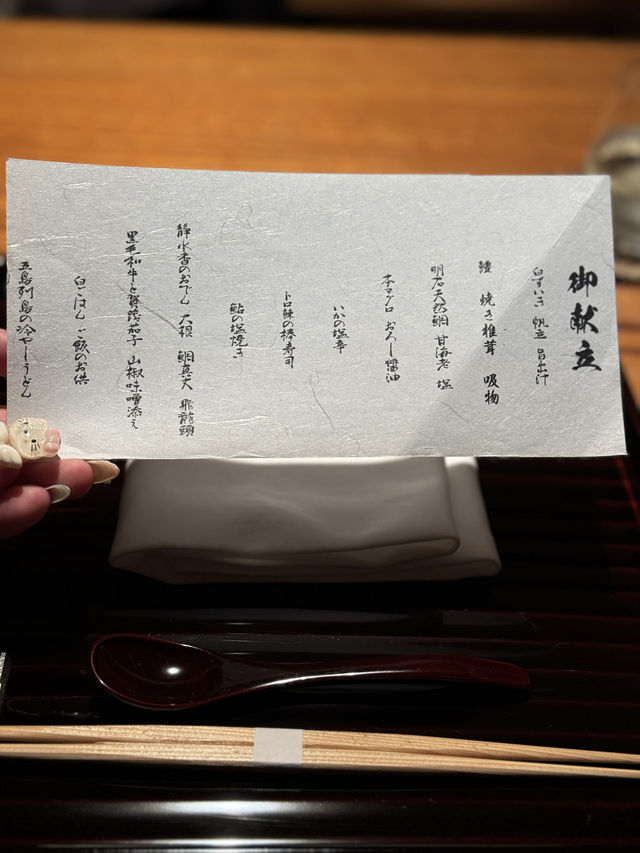 御献立
白ずいき 帆立 旨出汁
鱧 焼き椎茸 吸物
明石天然鯛 甘海老 塩
本マグロ おろし醤油
いかの塩辛
トロ鰊の棒寿司
鮎の塩焼き
静水香のおでん 大根 鯛真丈 飛龍頭
黒毛和牛と賀茂茄子 山椒味噌添え
白ごはん ご飯のお供
五島列島の冷やしうどん